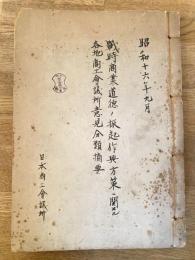 昭和十六年九月
戦時商業道徳ノ振起作興方策ニ関スル
各地商工会議所意見分類摘要
日本商工会議所